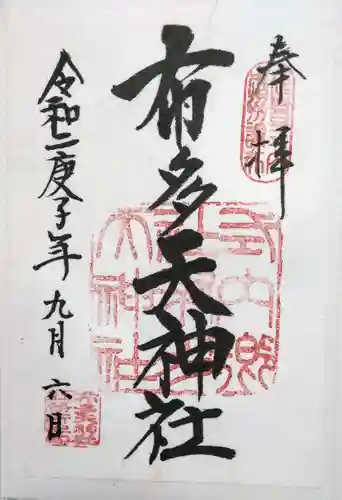 奉拝
布多天神社
令和二庚子年九月六日